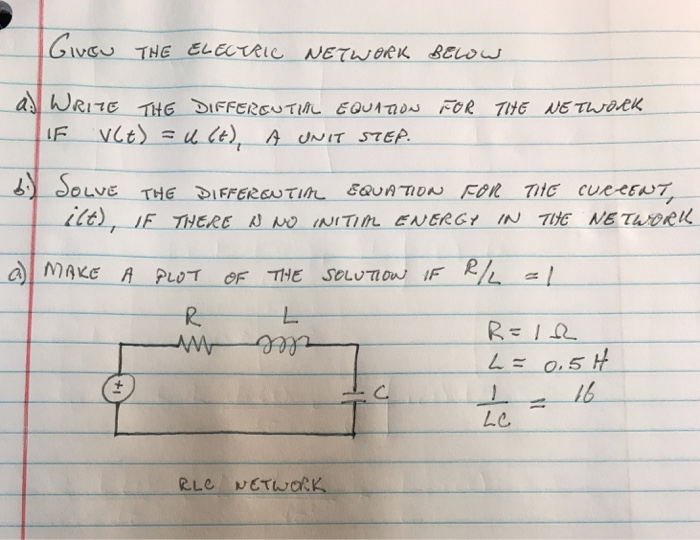 GIVEN THE ELECTRIC NETWORK BELOW
a.) WRITE THE DIFFERENTIAL EQUATION FOR THE NETWORK
IF V(t) = u(t), A UNIT STEP.
b.) SOLVE THE DIFFERENTIAL EQUATION FOR THE CURRENT,
i(t), IF THERE IS NO INITIAL ENERGY IN THE NETWORK
a) MAKE A PLOT OF THE SOLUTION IF R/L = 1
R L
R = 1 Ω
L = 0.5 H
+ -
C
1/LC = 16
RLC NETWORK